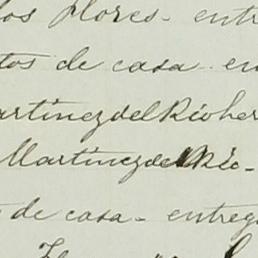 los Flores - entr
tos de casa en
artinez del Rio her
Martinez del Rio -
de casa - entreg